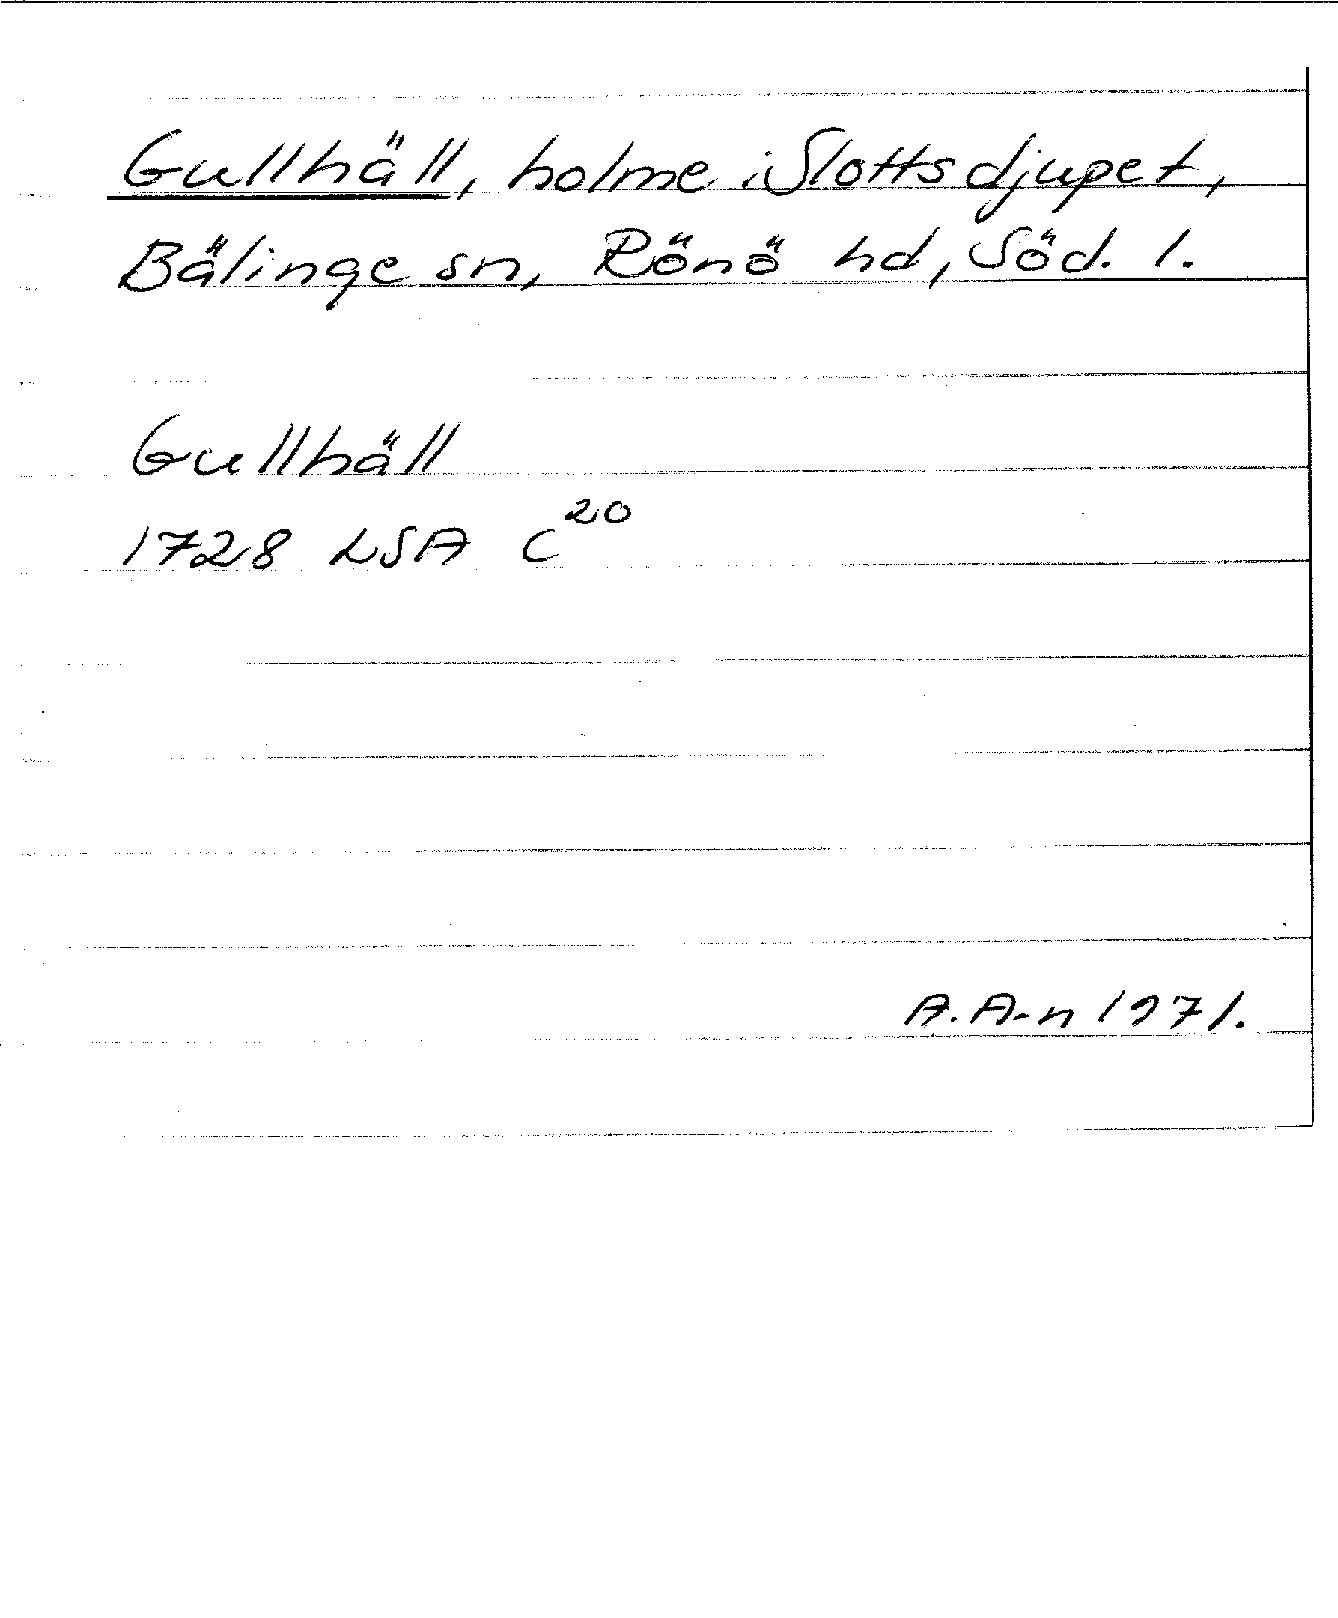 Gullhäll, holme i Slottsdjupet,
Bälinge sn, Rönö hd, Söd. l.
Gullhäll
1728 LSA C²⁰
A. A-n 1971.